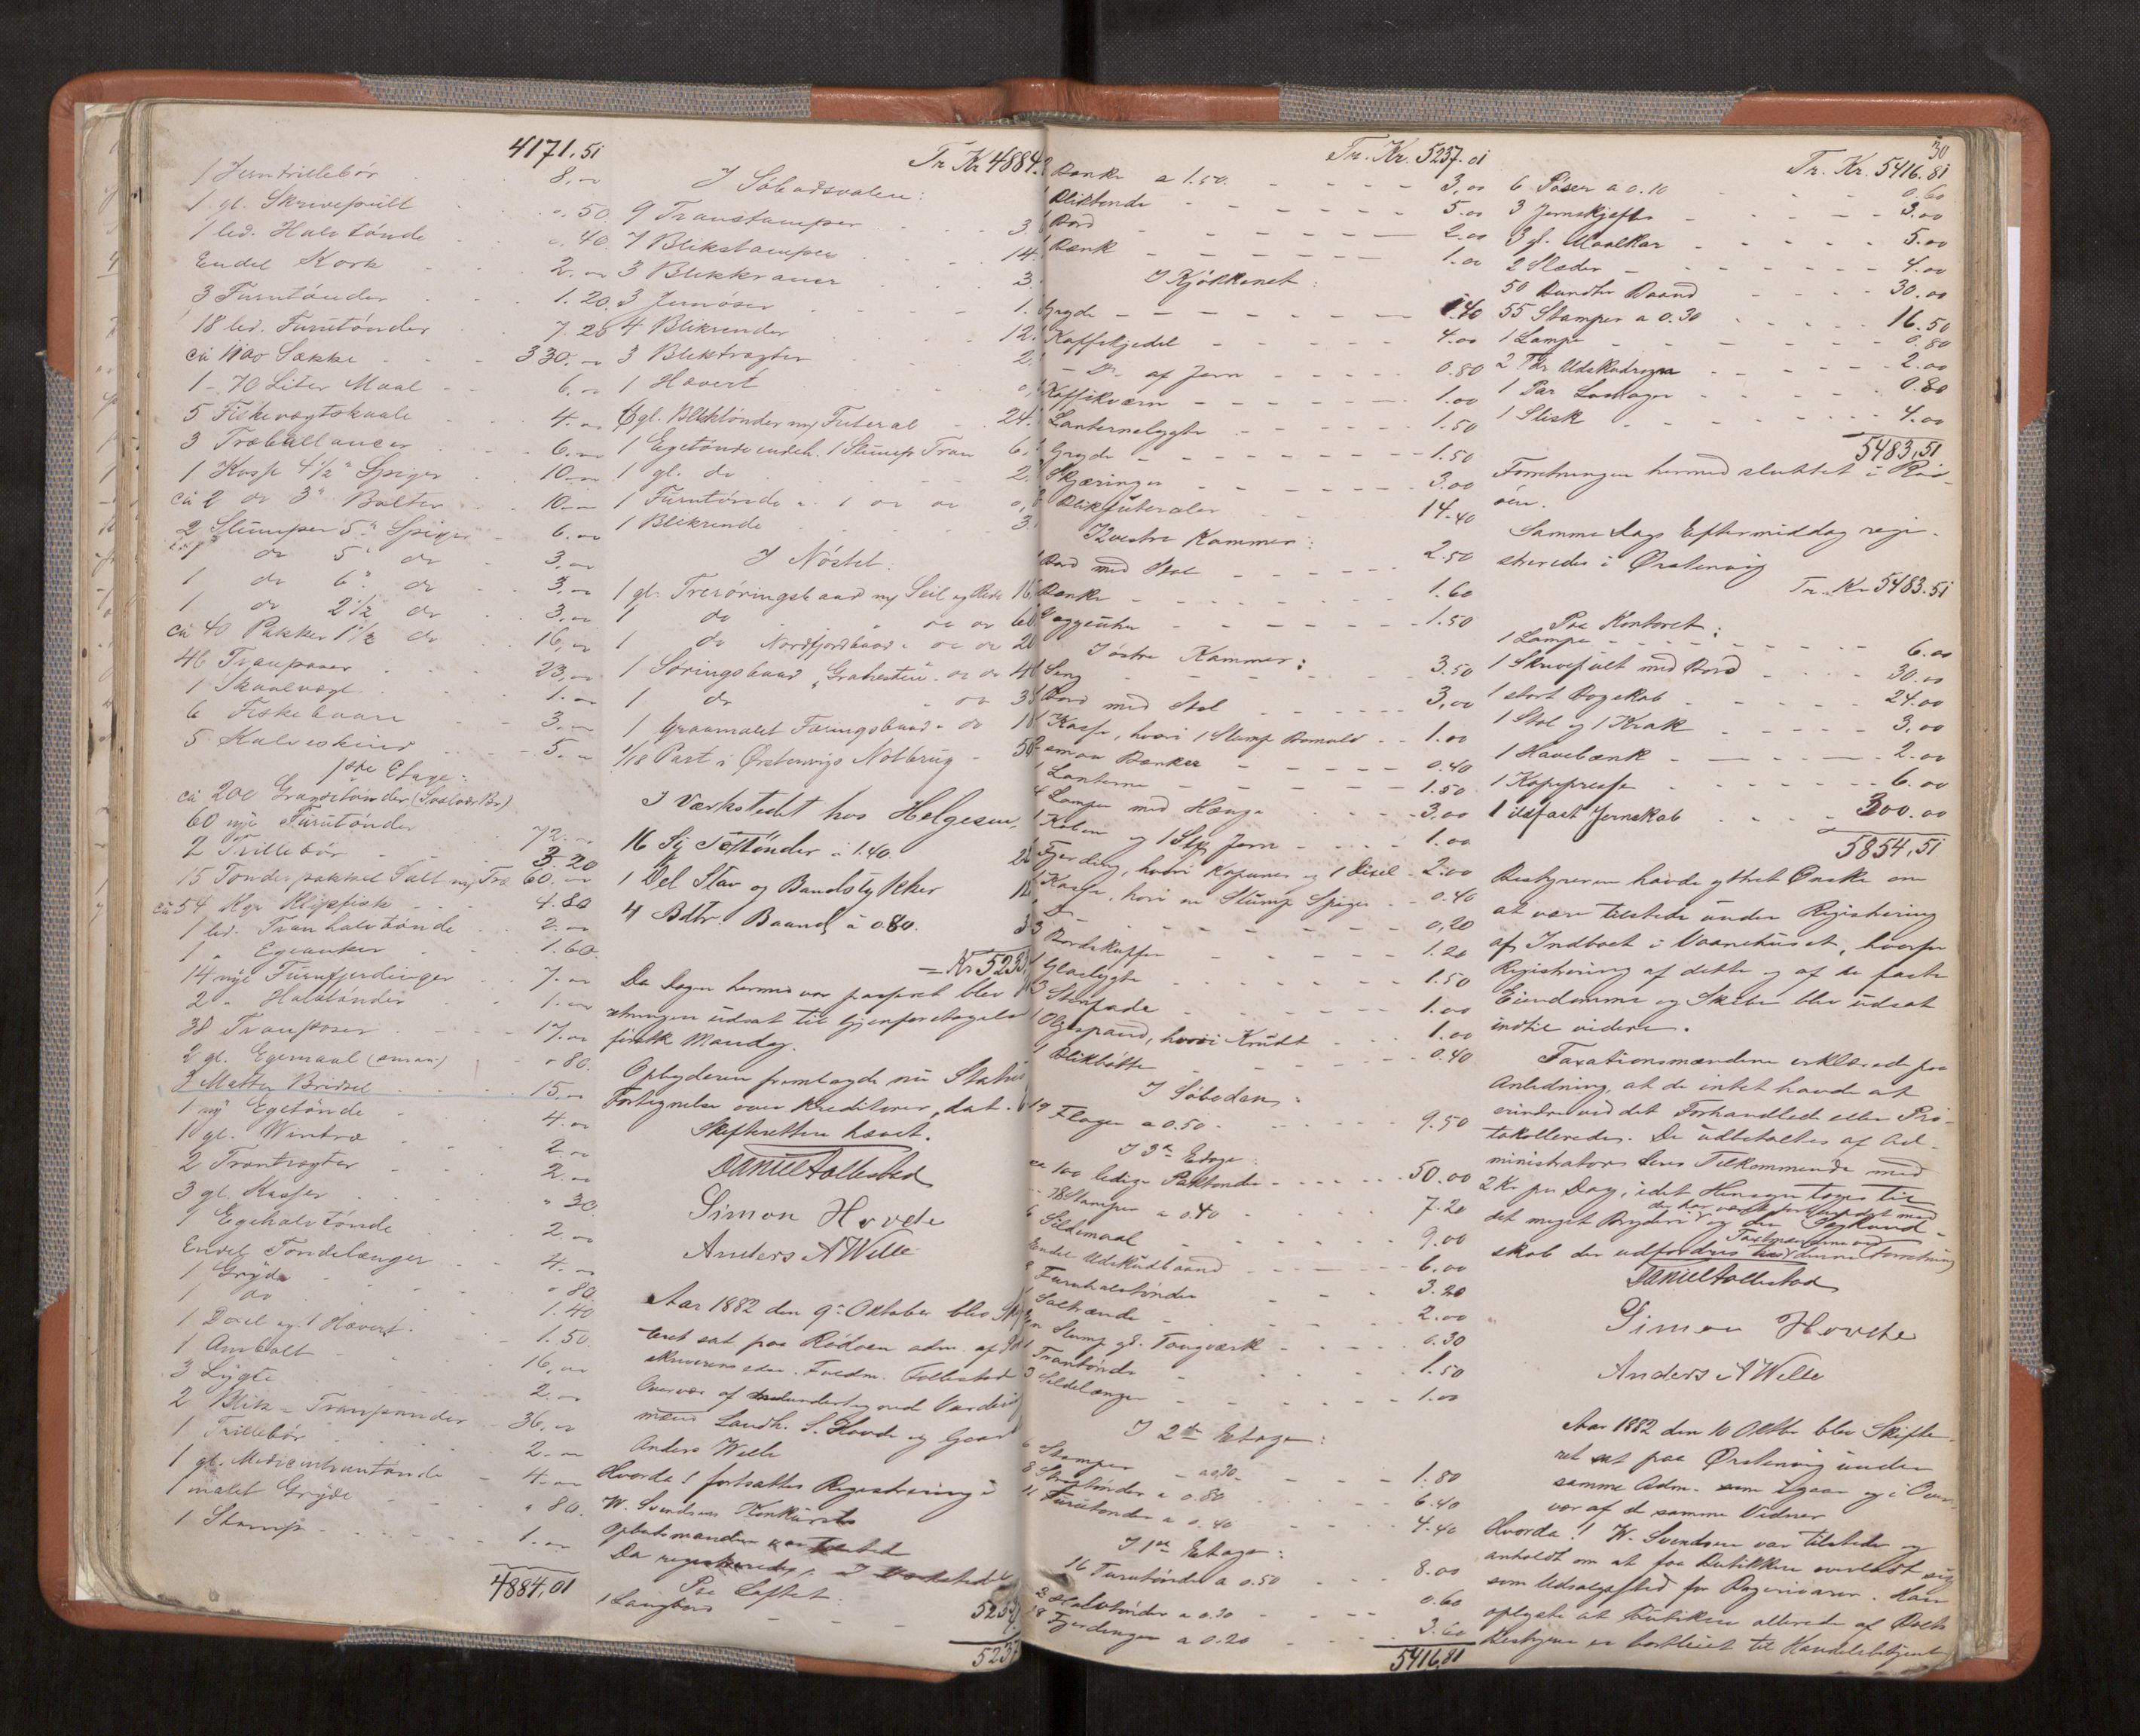 4171.51
1 Jerntrillebör 8.00
1 gl. Skrivepult 0.50
1 led. Halvtönde 0.40
Endel Kork 2.00
3 Furutönder 1.20
18 led. Furutönder 7.20
ca 1100 Sække 330.00
1 - 70 Liter Maal 6.00
5 Fiskevægtskaale 4.00
3 Træballancer 6.00
1 Kasse 4 1/2" Spiger 10.00
ca 2 do 3" Bolter 10.00
2 Slumper 5" Spiger 6.00
1 do 5" do 3.00
1 do 6" do 3.00
1 do 2 1/2 do 3.00
ca 40 Pakker 1 1/2 do 16.00
46 Tranposer 23.00
1 Skaalvægt 1.00
6 Fiskebaare 3.00
5 Kalveskind 5.00
1ste Etage:
ca 200
60 nye Furutönder 72.00
2 Trillebör 3.20
15 Tönder pakket Salt m/ Træ 60.00
ca 54 Kgr Klipfisk 4.80
1 led. Tran halvtönde 2.00
1 " Egeanker 1.60
14 nye Furufjerdinger 7.00
2 " Halvtönder 1.00
38 Tranposer 17.00
2 gl. Egemaal 0.80
3 Matter 15.00
1 ny Egetönde 4.00
1 gl. 2.00
2 Trantragter 2.00
3 gl. Kasser " 30
1 Egehalvtönde 2.00
Endel Töndelænger 4.00
1 Gryde 0.80
1 do 1.40
1 Dexel og 1 Hævert 1.50
1 Ambolt 16.00
3 Lygte 2.00
2 Blik- Tranpander 36.00
1 Trillebör 2.00
1 gl. Medicintrantönde 4.00
1 malet Gryde " 80
1 Stamp 1.00
4884,01
Tr. Kr 4884.
I Söbodsvalen:
9 Transtamper 3.
7 Blikstamper 14.
3 Blikkraner 3.
3 Jernöser 1.
4 Blikrender 12.
3 Bliktragter 2.
1 Hævert 0,
6 gl. Bliktönder m/ Futeral 24.
1 Egetönde indeh. 1 Slump Tran 6.
1 gl. do 2.
1 Furutönde " 1 do do 0,
1 Blikrende 3.
I Nöstet:
1 gl. Treröringsbaad m/ Seil og Rede 16.
1 do do do 60
1 do Nordfjordbaad " do do 20
1 Söringsbaad do do 40
1 do do 35
1 Graamalet Færingsbaad " do 18
1/18 Part i Ørstenvigs Notbrug 50
I Værkstedet hos Helgesen.
16 Stk Tætönder a 1.40 22
1 Del Stav og Baandstykker 12
4 Bdtr. Baand a 0.80 3
= Kr 5233
Da Dagen hermed var passeret blev
retningen udsat til Gjenforetagelse
förstk. Mandag.
Opbyderen fremlagde nu Status
Fortegnelse over Kreditorer, dat.
Skifteretten hævet.
Daniel Follestad
Simon Hovde
Anders A Welle
Aar 1882 den 9de Oktober blev Skif
teret sat paa Rödöen adm. af
skriverens edsv. Fuldm. Follestad
Overvær af undertegnede Vurderings
mænd Landh. S. Hovde og Gaar
Anders Welle
Hvorda! fortsattes Registrering i
W. Svendsens Konkursbo
Opbudsmanden var tilsted
Da registreredes:
Paa Loftet.
1 Langbord
5237
Tr. Kr. 5237.01
Bænke a 1.50 3,00
1 Bliktönde 5.00
1 Bord 2.00
1 Bænk 1.00
I Kjökkenet:
1 Gryde 1.40
1 Kaffekjedel 4.00
1 - Do af Jern 0.80
1 Kaffekværn 1.00
1 Lanternelygte 1.50
1 Gryde 1.50
Skjæringer 3.00
8 Blikfuteraler 14.40
I vestre Kammer:
1 Bord med Stol 2.50
Bænke 1.60
Væggeuhr 1.50
I östre Kammer:
1 Seng 3.50
1 Bord med Stol 3,00
1 Kasse, hvori 1 Slump Bomuld 1.00
smaa Bænker 0.40
1 Lanterne 1.50
4 Lamper med Hænge 3.00
1 Koben og 1 Stk Jern 1.00
1 Fjerding, hvori Kapuner og 1 Dexel 2.00
1 Kasse, hvori en Slump Spiger 0.40
1 Do 0,20
3 Bordskuffer 1.20
1 Glaslygte 1.50
3 Stenfade 1.00
1 Olgespand, hvori Krudt 1.00
1 Blikbötte 0.40
I Söboden:
19 Flager a 0.50 9.50
I 3die Etage:
ca 100 ledige Paktönder 50.00
18 Stamper a 0.40 7.20
6 Sildemaal 9.00
Endel Udskudbaand 6.00
8 Furuhalvtönder 3.20
1 Saltrænde 2.00
En Slump gl. Tougværk 0.30
1 Trantönde 1.50
3 Sildelænger 1.00
I 2den Etage:
6 Stamper a 0,30 1.80
8 Stavtönder a 0.80 6.40
11 Furutönder a 0.40 4.40
I 1ste Etage:
16 Furutönder a 0.50 8.00
2 Halvtönder a 0.30 0.60
18 Fjerdinger a 0.20 3.60
5416,81
30
Tr. Kr. 5416.81
6 Poser a 0.10 0.60
3 Jernskjefte 3.00
3 gl. Maalkar 5.00
2 Slæder 4.00
50 Bundter Baand 30.00
55 Stamper a 0.30 16.50
1 Lampe 0.80
2 Par 2.00
1 Par 0.80
1 Slisk 4.00
5483,51
Forretningen hermed sluttet i Röd-
öen.
Samme Dags Eftermiddag regi-
streredes i Ørstenvig
Tr. Kr 5483.51
Paa Kontoret:
1 Lampe 6.00
1 Skrivepult med Bord 30.00
1 stort Bogskab 24.00
1 Stol og 1 Krak 3,00
1 Havebænk 2.00
1 Kopipresse 6.00
1 ildfast Jernskab 300.00
5854,51
Bestyreren havde yttret Önske om
at være tilstede under Registrering
af Indboet i Vaanehuset, hvorfor
Registrering af dette og af de faste
Eiendomme og Skibe blev udsat
indtil videre.
Taxationsmændene erklærede paa
Anledning, at de intet havde at
erindre ved det Forhandlede eller Pro-
tokollerede. De udbetaltes af Ad-
ministrator deres Tilkommende med
2 Kr pr Dag, idet Hensyn toges til
der har været forbundet med
det meget Bryderi og den Sagkund-
Taxtmændene ved
skab der udfordres denne Forretning
Daniel Follestad
Simon Hovde
Anders A Welle
Aar 1882 den 10 Oktbr blev Skifte-
ret sat paa Ørstenvig under
samme Adm. som igaar og i Over-
vær af de samme Vidner
Hvorda! W. Svendsen var tilstede og
anholdt om at faa Butikken overladt sig
som Udsalgssted for Bagerivarer. Han
oplyste at Butikken allerede af Boets
Bestyrer er bortleiet til Handelsbetjent